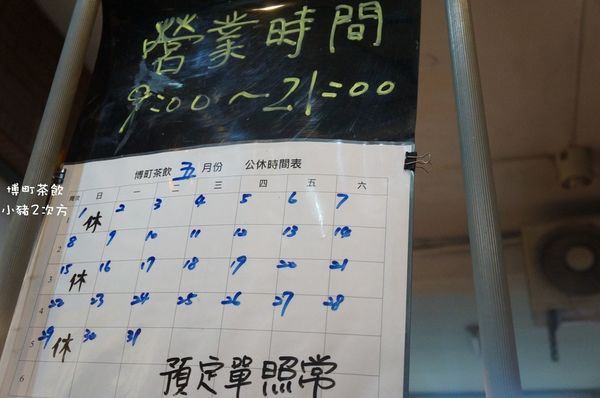 營業時間
9:00～21:00
博町茶飲 五 月份 公休時間表
週次 日 一 二 三 四 五 六
1 休 2 3 4 5 6 7
2 8 9 10 11 12 13 14
3 15 休 16 17 18 19 20 21
4 22 23 24 25 26 27 28
5 29 休 30 31
6
預定單照常
博町茶飲
小豬2次方